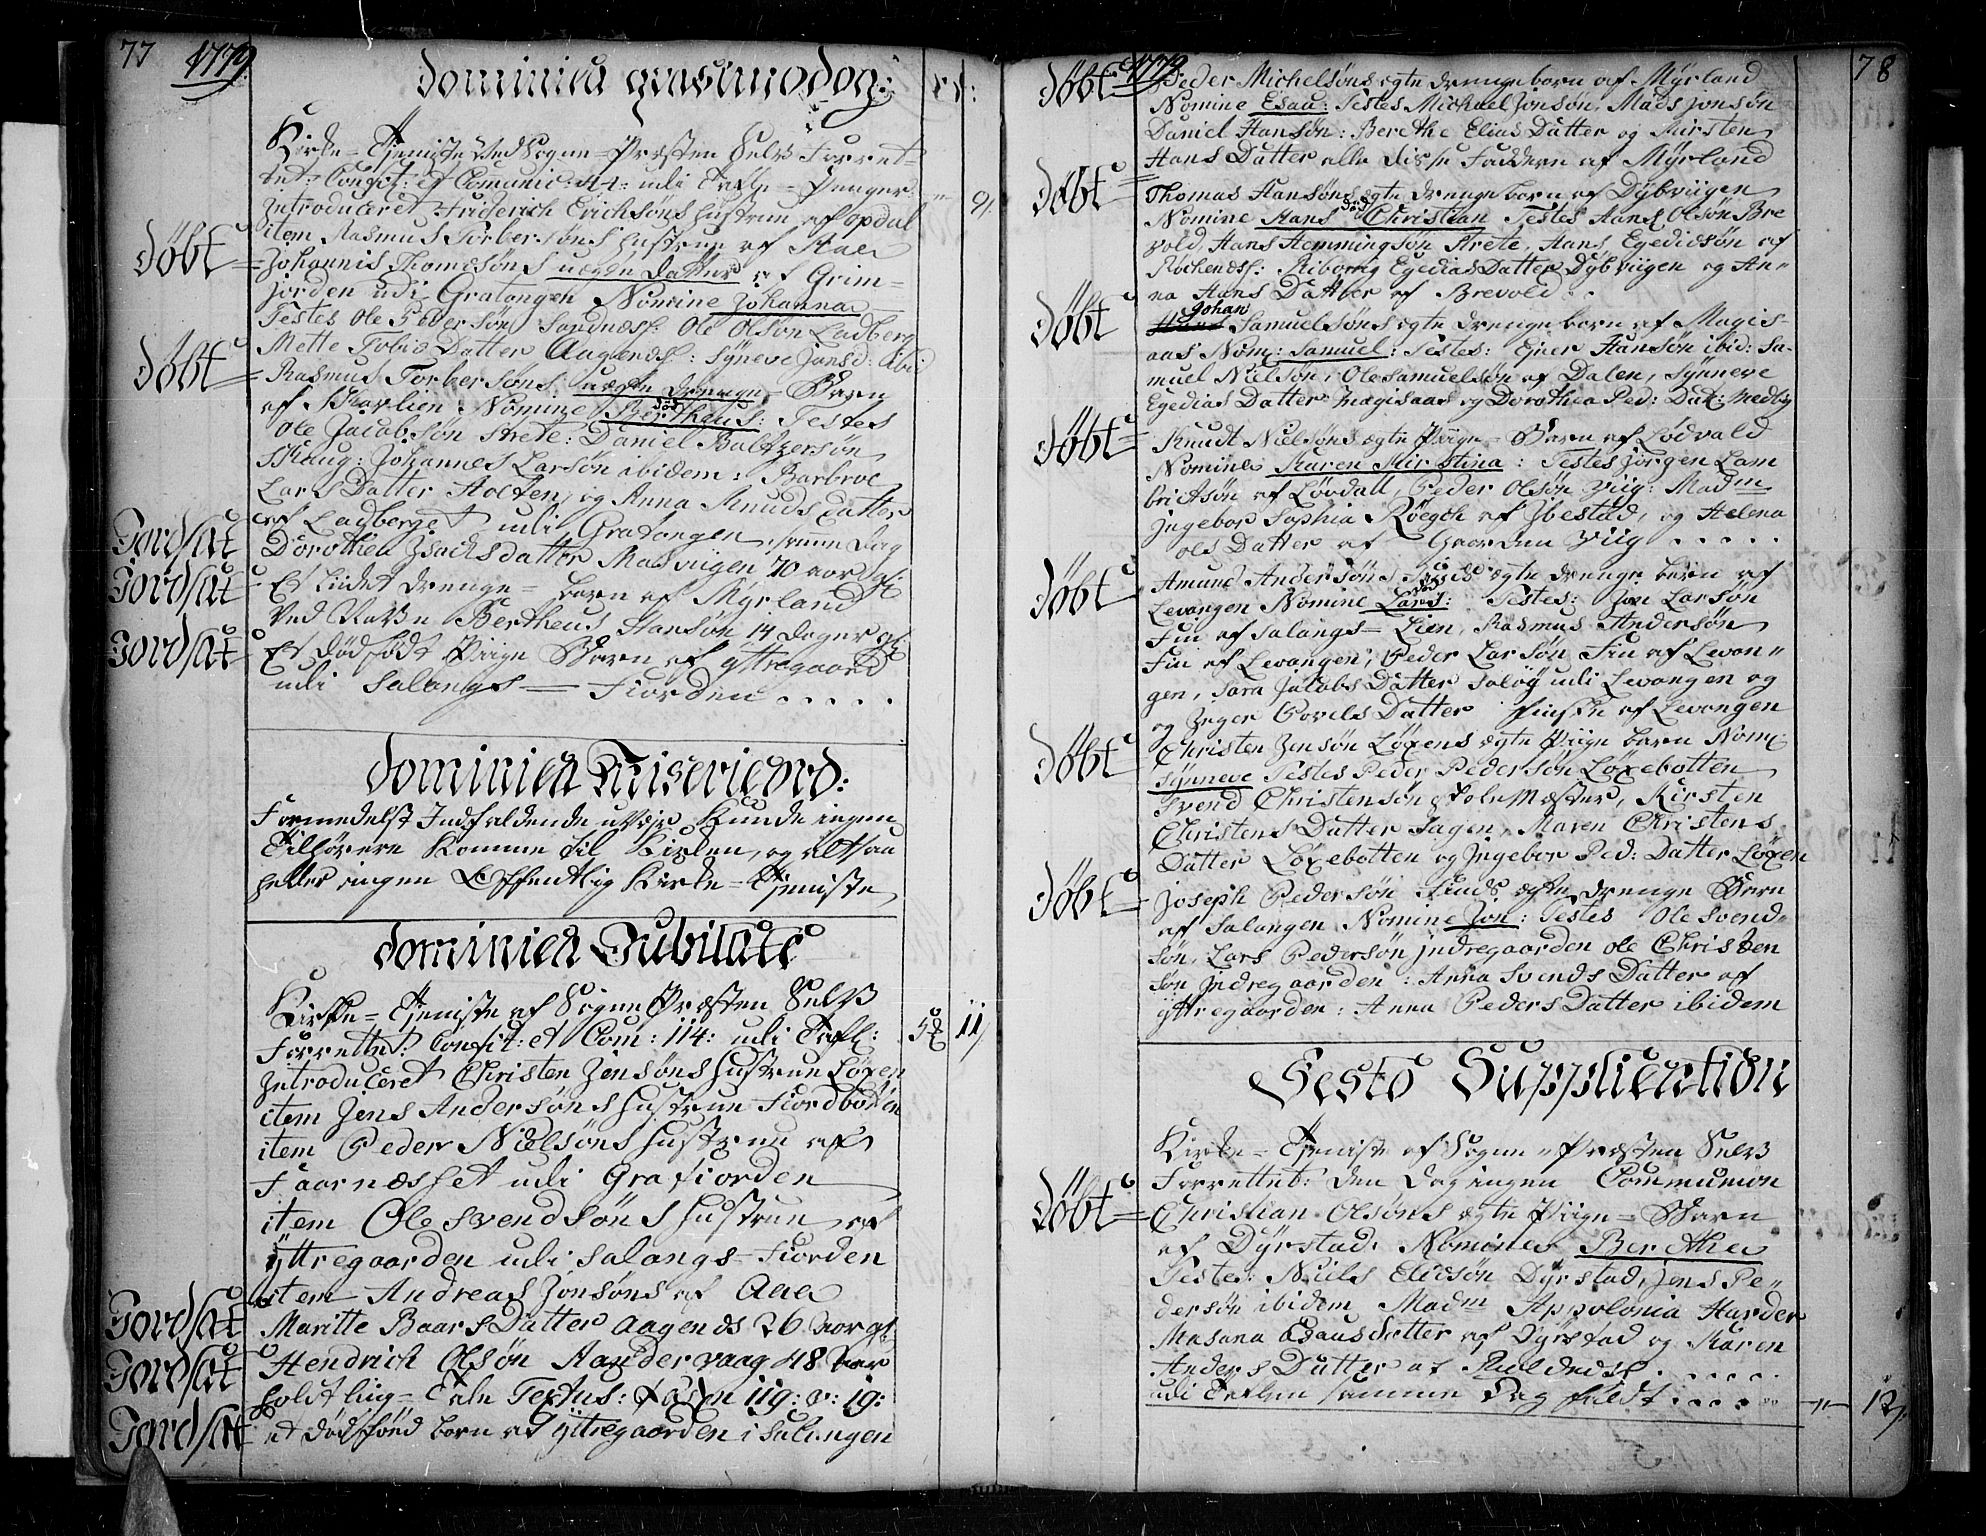 77 1779
Dominica quasimodog:
Kirke-Tjeniste Ved Sogne-Præsten Selv Forret-
tet: Confit: et Communic: 44: udi Tafle-Penger 9/
Introduceret Friderich Erichsøns Hustrue af Opdal
item Rasmus Torbersøns Hustrue af
Døbt Johannis Thomæsøns uægte Datter af Grim-
jorden udi Gratangen Nomine Johanna
Testes Ole Pedersøn Sandnæss: Ole Olsøn Ladberg
Mette Tobiæ Datter Aagenæs: Synneve Jonsd: ibid
Døbt Rasmus Torbersøns uægte Drenge-Barn
af Skavlien Nomine Bertheus: død Testes
Ole Jacobsøn Strete: Daniel Baltzersøn
Skaug: Johannes Larsøn ibidem: Barbroe
Lars Datter Holten, og Anna Knuds Datter
af Ladberget udi Gratangen, samme Dag
Jordsat Dorothea Isachsdatter Masviigen 70 aar gl
Jordsat Et lidet Drenge-barn af Myrland
Ved Navn Bertheus Hansøn 14 Dager gl
Jordsat Et dødfødt Piige Barn af yttregaard
udi Salangs-Fiorden . . . . .
Dominica Misericord:
Formedelst Indfaldende uveir Kunde ingen
Tilhørere Komme til Kirken, og altsaa
heller ingen Offentlig Kirke-Tjeniste
Dominica Jubilate
Kirke-Tjeniste af Sogne Præsten Selv
Forrettet: Confit: et Com: 114: udi Tafl: 5 11/
Introduceret Christen Jensøns Hustrue Løxen
item Jens Andersøns Hustrue Fiordbotten
item Peder Nielsøns Hustrue af
Faarnæsset udi Grafiorden
item Ole Svendsøns Hustrue af
yttregaarden udi Salangs-Fiorden
item Andreas Jonsøns af Aae
Jordsat Maritte Baars Datter Aagenæs 26 aar gl:
Jordsat Hendrich Olsøn Handervaag 48 aar
holdt Liig-Tale Textus: 119: v: 19:
Jordsat et dødfød barn af yttregaarden i Salangen
1779 78
Døbt Peder Michelsøns ægte drengebarn af Myrland
Nomine Esau: Testes Michael Jonsøn, Mads Jonsøn
Daniel Hansøn: Berethe Elias Datter og Kirsten
Hans Datter alle disse Faddere af Myrland
Døbt Thomas Hansøns ægte drenge barn af Dybviigen
Nomine Hans død Christian Testes Hans Olsøn Bre
vold, Hans Hemmingsøn Strete, Hans Egediesøn af
Røchenæss: Riborrig Egedias Datter Dybviigen og An-
na Hans Datter af Brevold . .
Døbt Hans Johan Samuelsøns ægte drenge barn af Magis-
aas Nom: Samuel: Testes: Ejner Hansøn ibid: Sa-
muel Nielsøn, Ole Samuelsøn af Dalen, Synneve
Egedias Datter Magisaas og Dorothea Ped: Dat: Medby
Døbt Knudt Nielsøns ægte Piige-Barn af Lødvald
Nomine Karen Kirstina: Testes Jørgen Lam
brictsøn af Løvdall, Peder Olsøn Viig: Madm
Ingebor Sophia Røegth af Ibestad, og Helena
Ols Datter af Gaarden Viig . . . . .
Døbt Amund Andersøn Finds ægte drenge barn af
Levangen Nomine Lars: død Testes: Jon Larsøn
Fin af Salangs-Lien, Rasmus Andersøn
Fin af Levangen, Peder Larsøn Fin af Levan-
gen, Sara Jacobs Datter Saløy udi Levangen og
og Inger Povels Datter Finske af Levangen
Døbt Christen Jensøn Løxens ægte Piige barn Nom:
Synneve Testes Peder Pedersøn Løxebotten
Svend Christensøn Skole Mæster, Kirsten
Christens Datter Sagen, Maren Christens
Datter Løxebotten og Ingebor Ped: Datter Løxen
Døbt Joseph Pedersøn Finds ægte drenge Barn
af Salangen Nomine Jon: Testes Ole Svend-
søn, Lars Pedersøn Indregaarden Ole Christen
søn Indregaarden: Anna Svends Datter af
yttregaarden: Anna Peders Datter ibidem
Festo Supplication
Kirke-Tjeniste af Sogne-Præsten Selv
Forrettet: Den Dag ingen Communion
Døbt Christian Olsøns ægte Piige-Barn
af Dyrstad: Nomine Berethe
Testes: Niels Eliæsøn Dyrstad, Jens Pe-
dersøn ibidem Madm Appolonia Harder
Masana Esausdatter af Dyrstad og Karen
Anders Datter af . . . . .
udi Taflen samme Dag faldt . . . . 12/